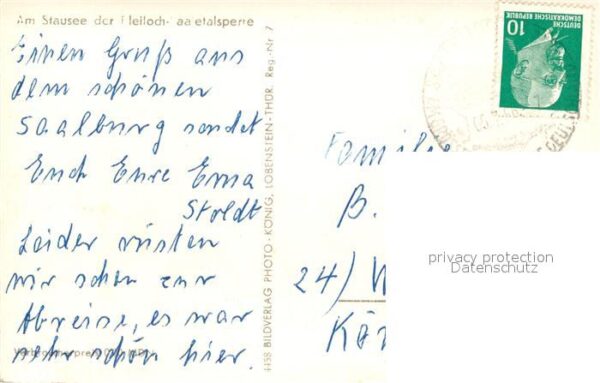 Am Stausee der Bleiloch-Saaletalsperre
Einen Gruß aus
dem schönen
Saalburg sendet
Euch Eure Erna
Stoldt
Leider rüsten
wir schon zur
Abreise, es war
sehr schön hier.
4458 BILDVERLAG PHOTO-KÖNIG, LOBENSTEIN-THÜR. Reg.-Nr. 7
10
DEUTSCHE
DEMOKRATISCHE REPUBLIK
Familie
B.
24)
privacy protection
Datenschutz